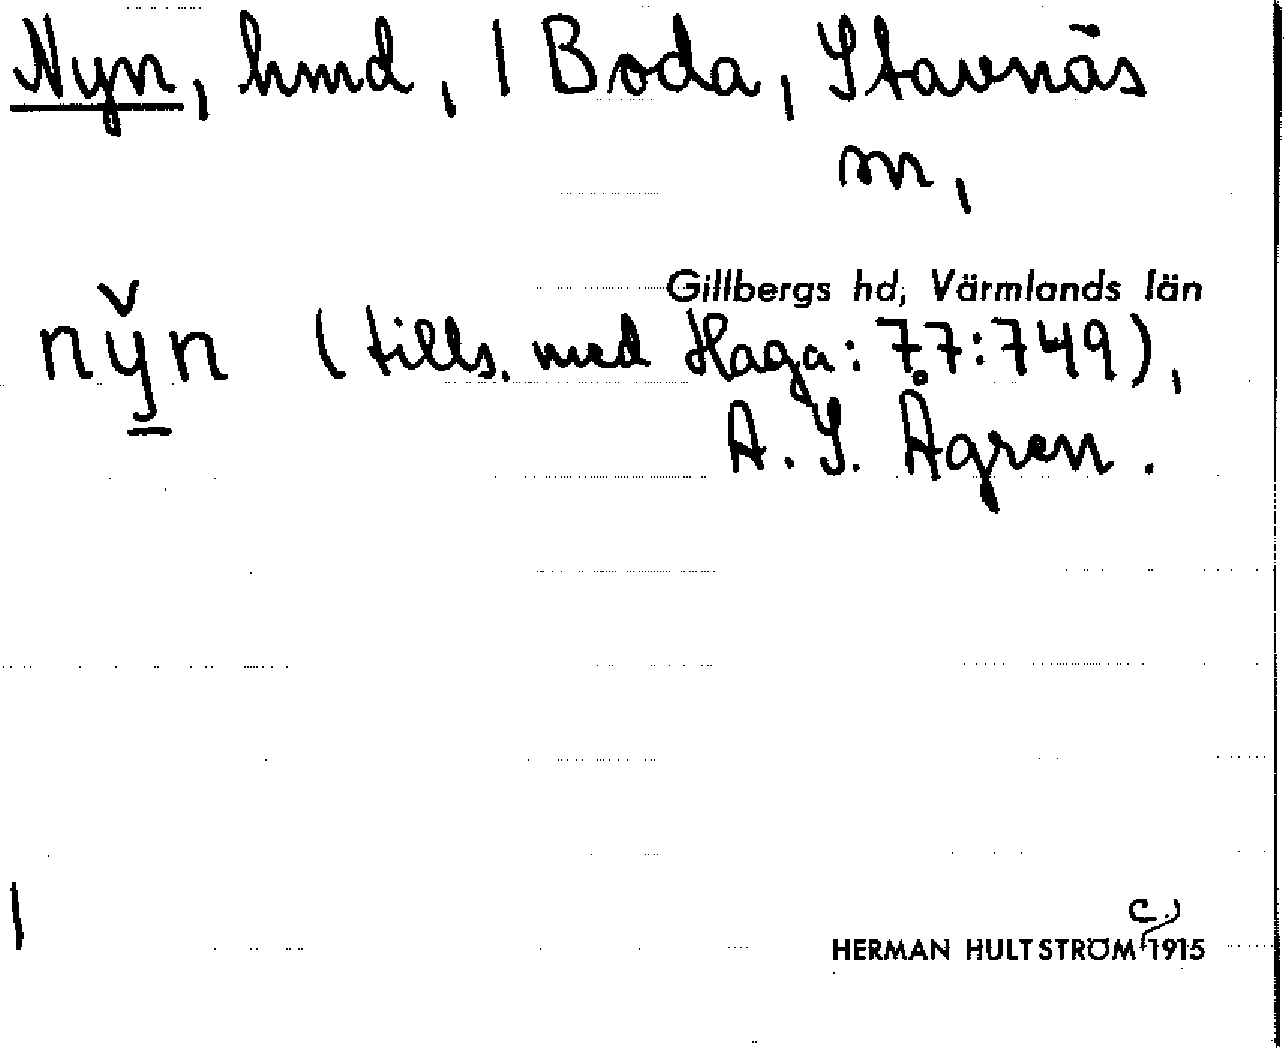 Nyn, hmd, 1 Boda, Stavnäs
sn,
Gillbergs hd, Värmlands län
ny̌n (tills. med Haga: 77:749),
A. S. Ågren.
1
HERMAN HULTSTRÖM (c.) 1915